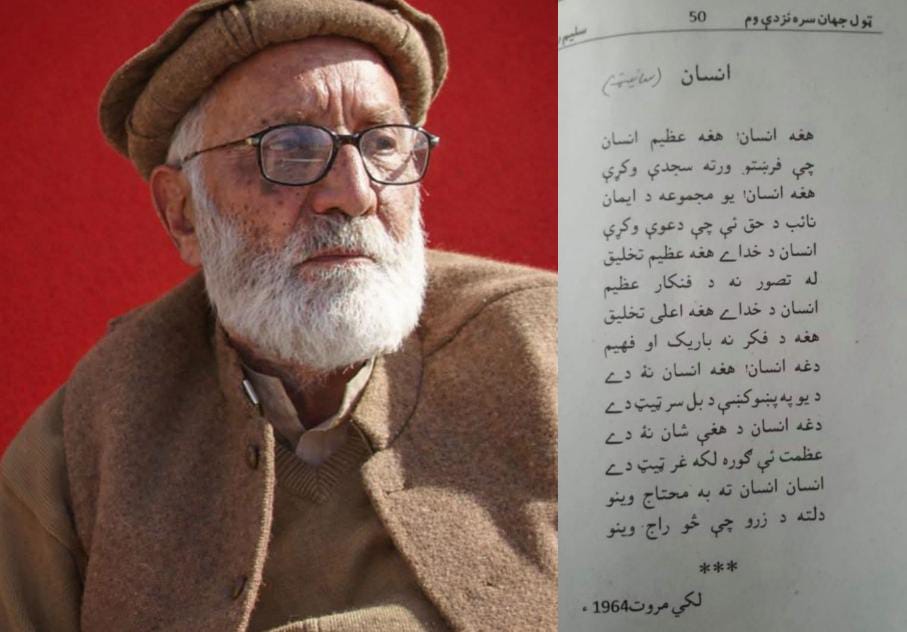 ټول جهان سره نزدې وم 50
سليم
انسان (سانيټ)
هغه انسان! هغه عظيم انسان
چې فرښتو ورته سجدې وکړې
هغه انسان! يو مجموعه د ايمان
نائب د حق ئې چې دعوې وکړې
انسان د خداے هغه عظيم تخليق
له تصور نه د فنکار عظيم
انسان د خداے هغه اعلی تخليق
هغه د فکر نه باريک او فهيم
دغه انسان! هغه انسان نۀ دے
د يو په پښو کښې د بل سر ټيټ دے
دغه انسان د هغې شان نۀ دے
عظمت ئې ګوره لکه غر ټيټ دے
انسان انسان ته به محتاج وينو
دلته د زرو چې څو راج وينو
***
لکي مروت 1964ء